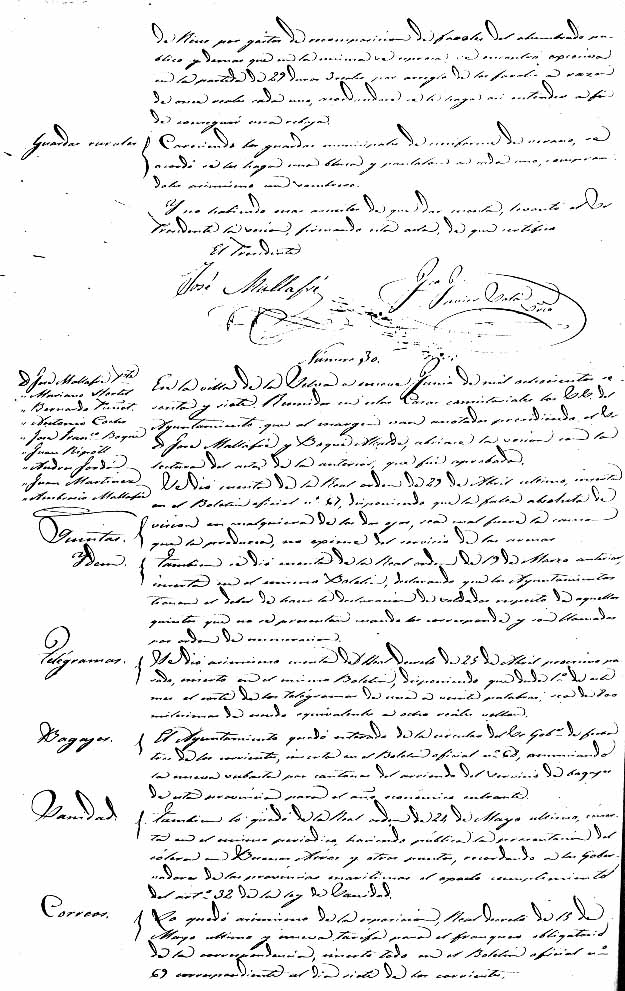 de Reus por gastos de recomposicion de faroles del alumbrado pu-
blico y demas que en la misma se espresa: se encontró excesiva
en la partida de 29 duros 2 reales por arreglo de los faroles a razon
de once reales cada uno, acordandose se le haga asi entender a fin
de conseguir una rebaja.
Guardas rurales
Careciendo los guardas municipales de uniforme de verano, se
acordó se les haga una blusa y pantalon a cada uno, compran-
doles asimismo un sombrero.
Y no habiendo mas asuntos de que dar cuenta, levantó el Sr
Presidente la sesion, firmando esta acta, de que certifico
El Presidente
José Mallafré
Número 30.
D. José Mallafré Pte
" Mariano
" Bernardo
" Antonio
" José Franco Boqué
" Juan Ripoll
" Andres Jordi
" Juan Martinez
" Mallafré
En la villa de la Selva a nueve Junio de mil ochocientos se-
senta y siete Reunidos en estas Casas consistoriales los SS. del
Ayuntamiento que al margen van anotados presididos el Sr
D. José Mallafré y Boqué Alcalde, abriose la sesion con la
lectura del acta de la anterior, que fué aprobada.
Quintas.
Se dió cuenta de la Real orden de 29 de Abril ultimo, inserta
en el Boletin oficial no 67, disponiendo que la falta absoluta de
vision en cualquiera de los dos ojos, sea cual fuere la causa
que la produzca, no exime del servicio de las armas
Ydem.
Tambien se dió cuenta de la Real orden de 19 de Marzo anterior,
inserta en el mismo Boletin, declarando que los Ayuntamientos
tienen el deber de hacer la declaracion de soldados respecto de aquellos
quintos que no se presentan cuando les corresponde y son llamados
por orden de numeracion.
Telégramas.
Se dió asimismo cuenta del Real decreto de 25 de Abril proximo pa-
sado, inserto en el mismo Boletin, disponiendo que desde 1o de
mes el coste de los telégramas de una a veinte palabras, sea de 800
milésimas de escudo equivalente a ocho reales vellon.
Bagajes.
El Ayuntamiento quedó enterado de la circular del Sr Gobr de fecha
tres de los corrientes, inserta en el Boletin oficial no 68, anunciando
la nueva subasta por cantones del arriendo del servicio de bagajes
de esta provincia para el año económico entrante.
Sanidad.
Tambien lo quedó de la Real orden de 24 de Mayo ultimo, inser-
ta en el mismo periodico, haciendo pública la presentacion del
cólera en Buenos Aires y otros puntos, recordando a los Gober-
nadores de las provincias maritimas el esacto cumplimiento
del arto 32 de la ley de Sanidad.
Correos.
Lo quedó asimismo de la esposicion, Real decreto de 15 de
Mayo ultimo y nueva tarifa para el franqueo obligatorio
de la correspondencia, inserto todo en el Boletin oficial no
69 correspondiente al dia siete de los corrientes.